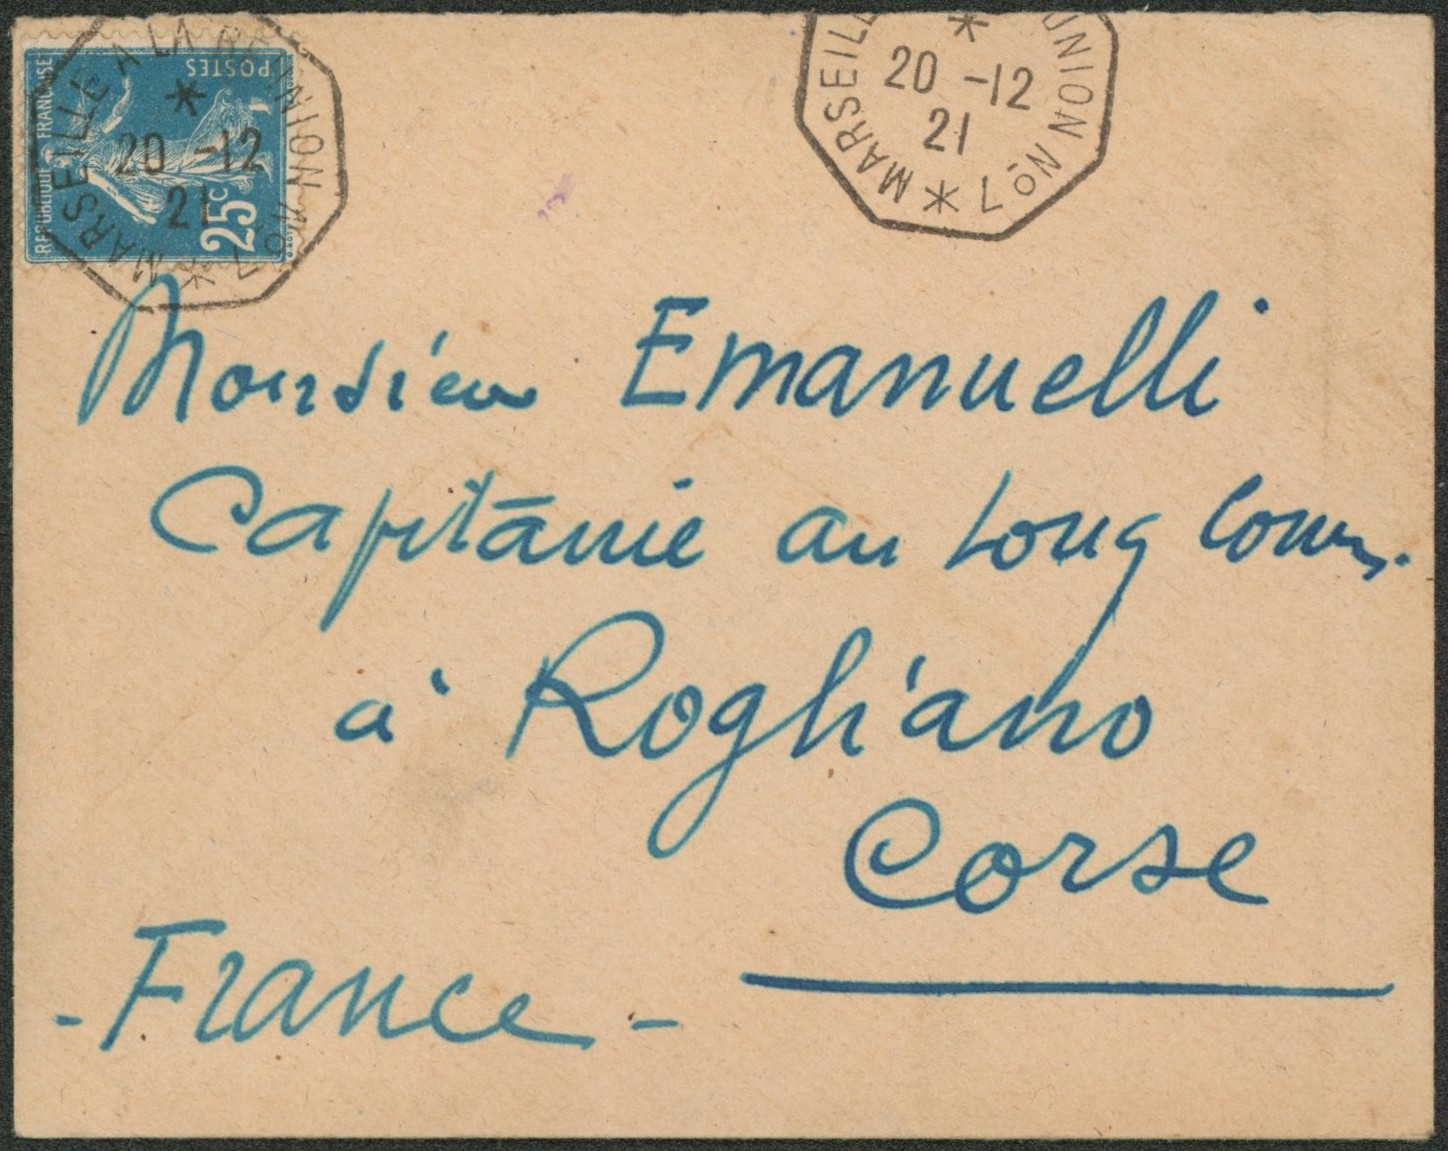 REPUBLIQUE FRANÇAISE
POSTES
25c
MARSEILLE A LA REUNION No 7
20 -12
21
MARSEILL UNION No 7
20 -12
21
Monsieur Emanuelli
Capitaine au Long Cours.
à Rogliano
Corse
- France -